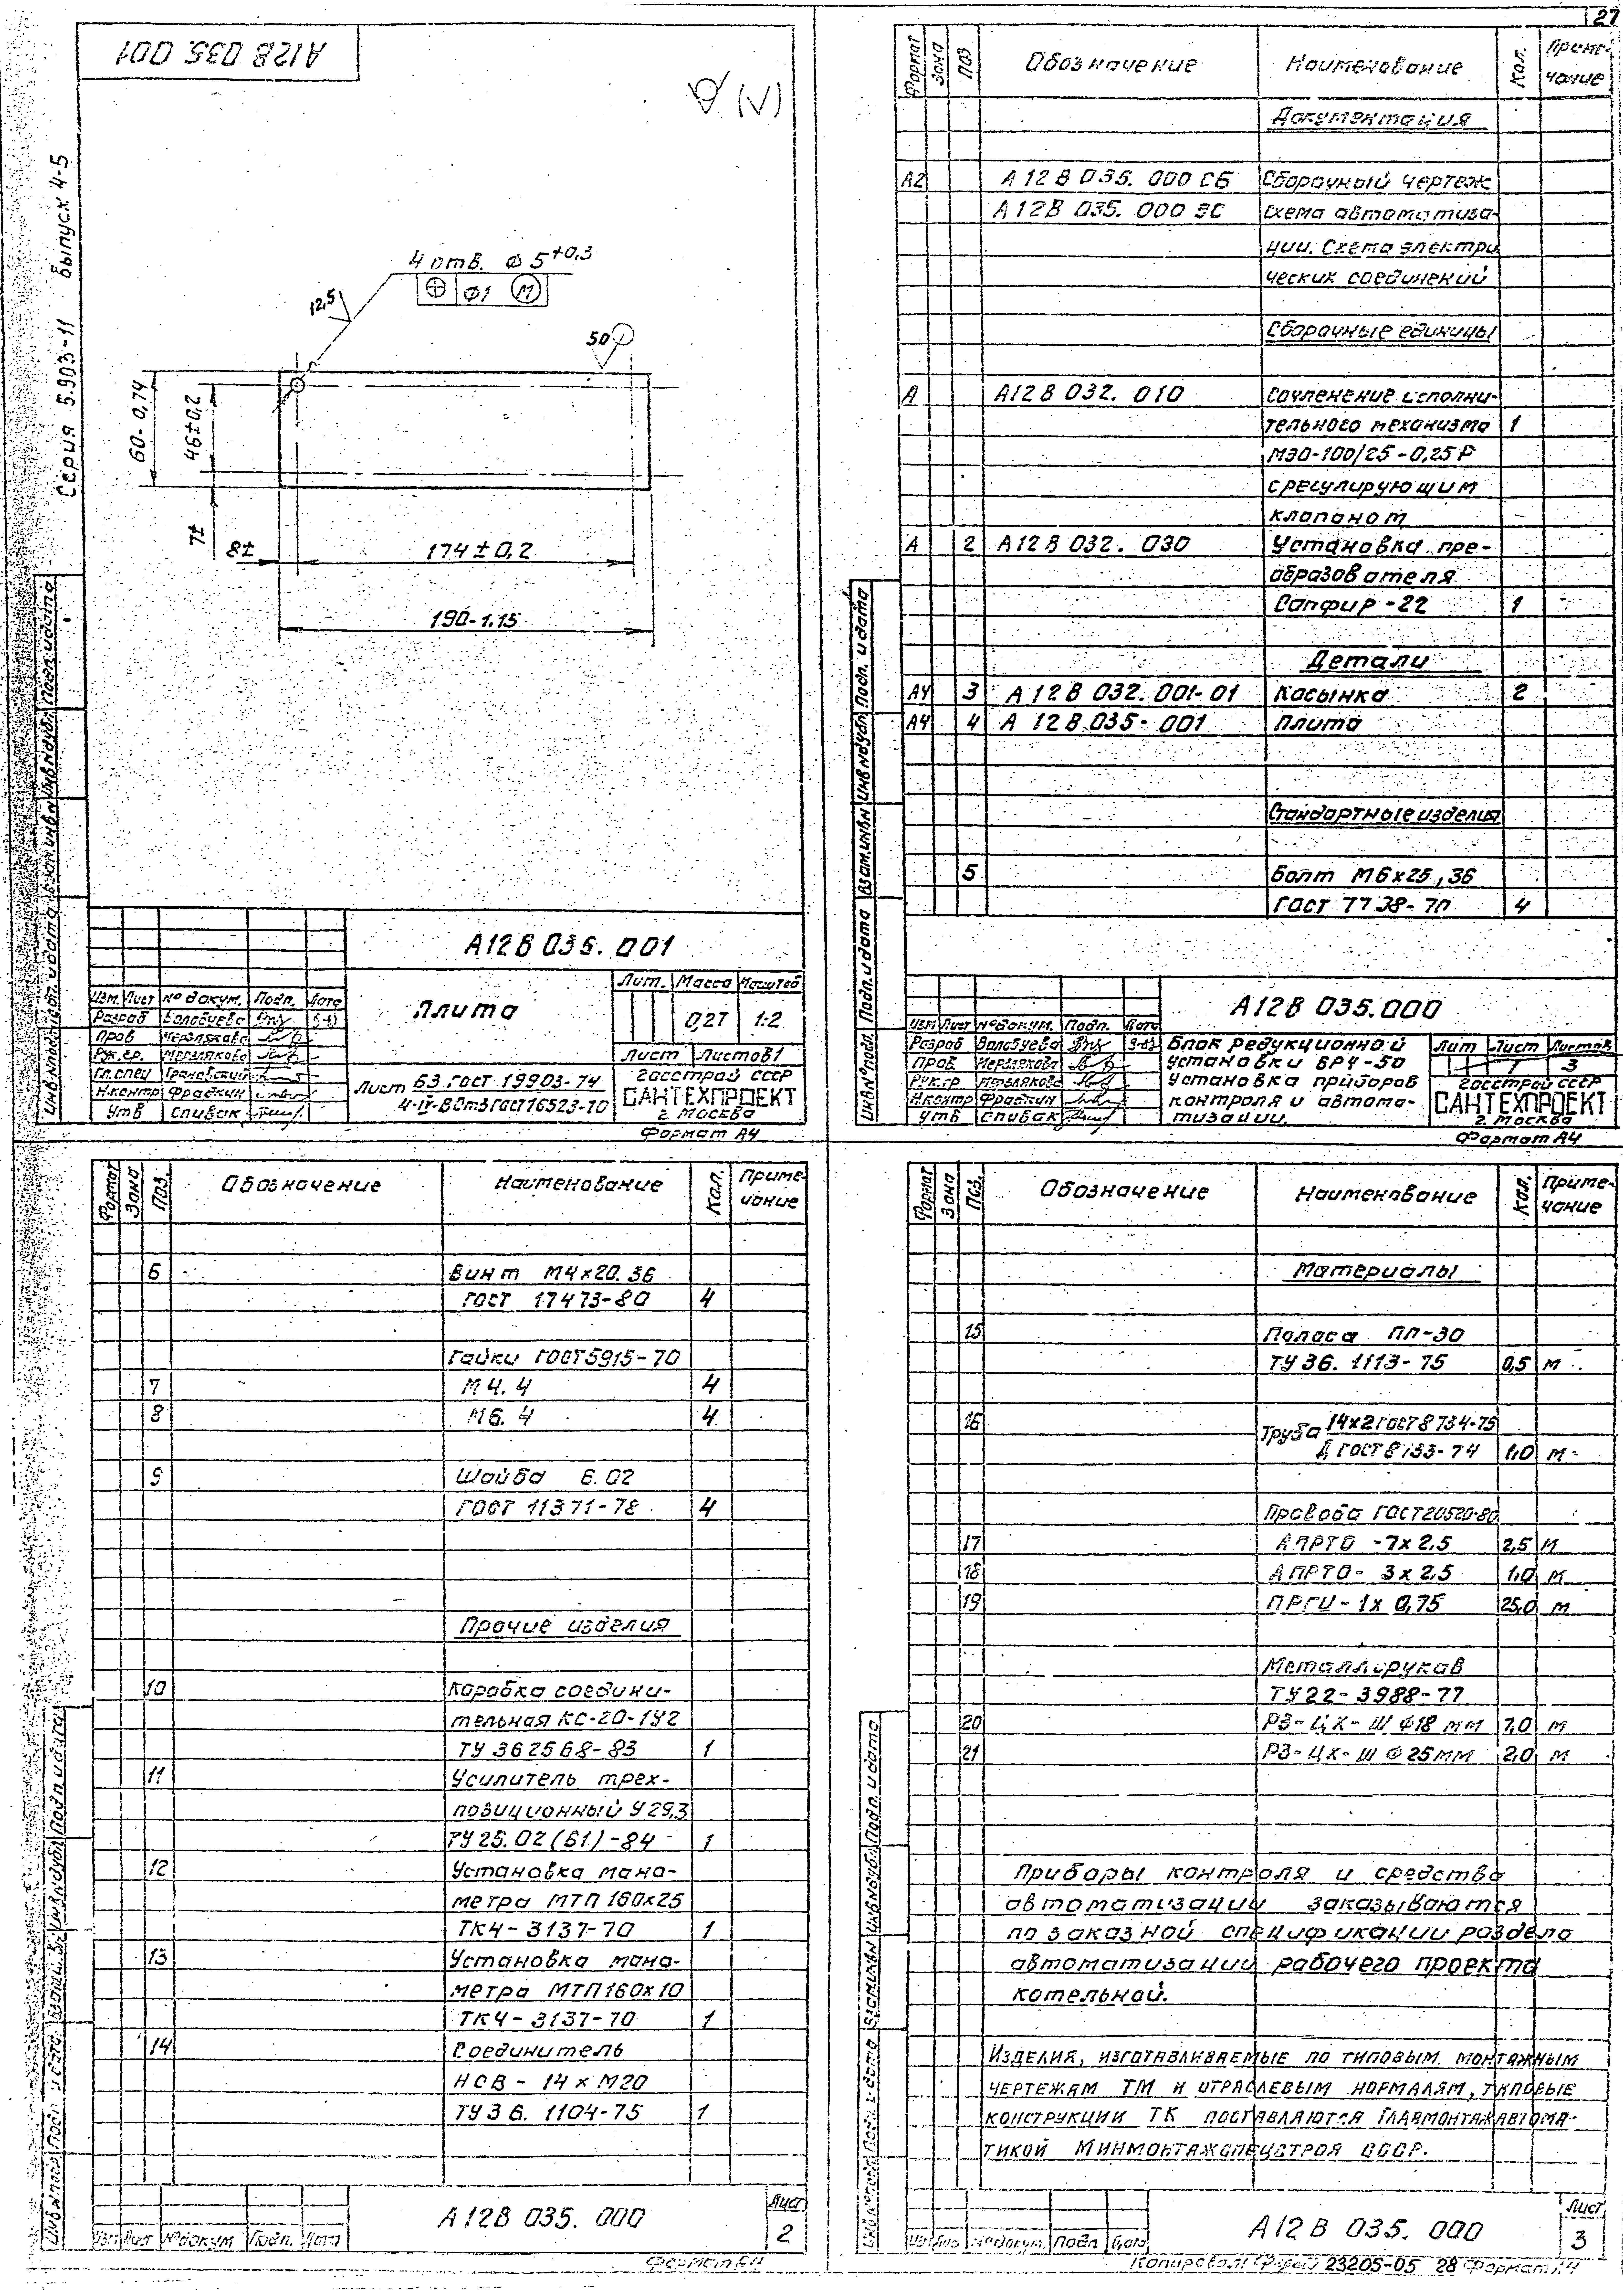 27
А12В 035. 001
Серия 5.903-11 Выпуск 4-5
(√)
4 отв. Ф 5 +0,3
⌖ Ф1 Ⓜ
12,5
50
60-0,74
46±0,2
7±
8±
174±0,2
190-1.15
Подп. и дата
Инв.№дубл.
Взам.инв.№
Подп. и дата
Инв.№подл.
А12В 035. 001
Изм. Лист № докум. Подп. Дата
Разраб Волобуева
Пров Мерзлякова
Рук.гр. Мерзлякова
Гл.спец Грановский
Н.контр Фрадкин
Утв Спивак
Плита
Лит. Масса Масштаб
0,27 1:2
Лист Листов 1
Лист Б3.ГОСТ 19903-74
4-IV-ВСт3 ГОСТ 16523-70
Госстрой СССР
САНТЕХПРОЕКТ
г. Москва
Формат А4
Формат Зона Поз Обозначение Наименование Кол. Примечание
Документация
А2 А12В 035. 000 СБ Сборочный чертеж
А12В 035. 000 ЭС Схема автоматиза-
ции. Схема электри
ческих соединений
Сборочные единицы
А А12В 032. 010 Сочленение исполни-
тельного механизма 1
МЭО-100/25-0,25Р
с регулирующим
клапаном
А 2 А12В 032. 030 Установка пре-
образователя
Сапфир-22 1
Детали
А4 3 А12В 032. 001-01 Косынка 2
А4 4 А12В 035-001 Плита
Стандартные изделия
5 Болт М6х25,36
ГОСТ 7738-70 4
Подп. и дата
Инв.№дубл
Взам.инв.№
Подп. и дата
Инв.№подл.
А12В 035.000
Изм Лист № докум. Подп. Дата
Разраб Волобуева
Пров Мерзлякова
Рук.гр Мерзлякова
Н.контр Фрадкин
Утв Спивак
Блок редукционной
установки БРУ-50
Установка приборов
контроля и автома-
тизации.
Лит Лист Листов
1 3
Госстрой СССР
САНТЕХПРОЕКТ
г. Москва
Формат А4
Формат Зона Поз. Обозначение Наименование Кол. Приме-
чание
6 Винт М4х20.36
ГОСТ 17473-80 4
Гайки ГОСТ 5915-70
7 М4.4 4
8 М6.4 4
9 Шайба 6.02
ГОСТ 11371-78 4
Прочие изделия
10 Коробка соедини-
тельная КС-20-1У2
ТУ 36 2568-83 1
11 Усилитель трех-
позиционный У29,3
ТУ 25.02(Б1)-84 1
12 Установка мано-
метра МТП 160х25
ТК4-3137-70 1
13 Установка мано-
метра МТП 160х10
ТК4-3137-70 1
14 Соединитель
НСВ-14 х М20
ТУ 36. 1104-75 1
Подп. и дата
Инв.№дубл
А12В 035. 000
Изм Лист № докум Подп. Дата
Лист
2
Формат А4
Формат Зона Поз. Обозначение Наименование Кол. Приме-
чание
Материалы
15 Полоса ПП-30
ТУ 36. 1113-75 0,5 м
16 Труба 14х2 ГОСТ 8734-75
Д ГОСТ 8733-74 1,0 м
Провода ГОСТ 20520-80
17 АПРТО-7х2,5 2,5 м
18 АПРТО-3х2,5 1,0 м
19 ПРГИ-1х 0,75 25,0 м
Металлорукав
ТУ 22-3988-77
20 РЗ-ЦХ-Ш Ф18 мм 7,0 м
21 РЗ-ЦХ-Ш Ф25мм 2,0 м
Приборы контроля и средства
автоматизации заказываются
по заказной спецификации раздела
автоматизации рабочего проекта
котельной.
Изделия, изготавливаемые по типовым монтажным
чертежам ТМ и отраслевым нормалям, типовые
конструкции ТК поставляются Главмонтажавтома-
тикой Минмонтажспецстроя СССР.
Подп. и дата
Инв.№дубл
Взам.инв.№
Подп. и дата
А12В 035. 000
Изм Лист № докум. Подп Дата
Лист
3
Копировал: 23205-05 28 Формат А4